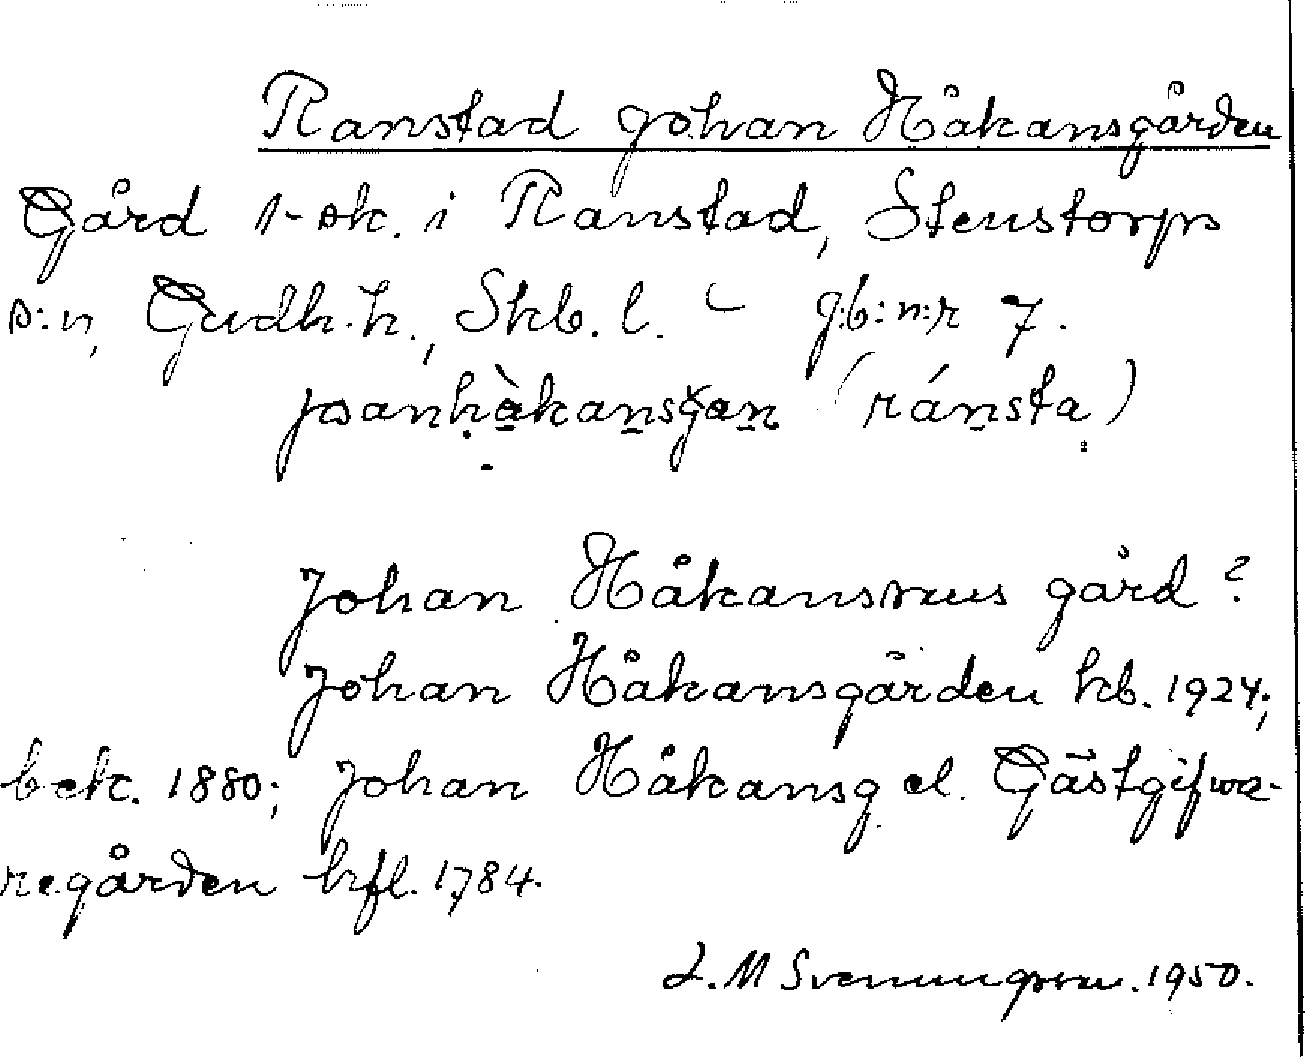 Ranstad Johan Håkansgården
Gård 1-sk. i Ranstad, Stenstorps
s:n, Gudh. h., Skb. l. – g:b:n:r 7.
(ránsta)
Johan Håkanssons gård?
Johan Håkansgården kb. 1924;
bek. 1880; Johan Håkansg el. Gästgifwa-
regården hfl. 1784.
L. M Svenungsson. 1950.